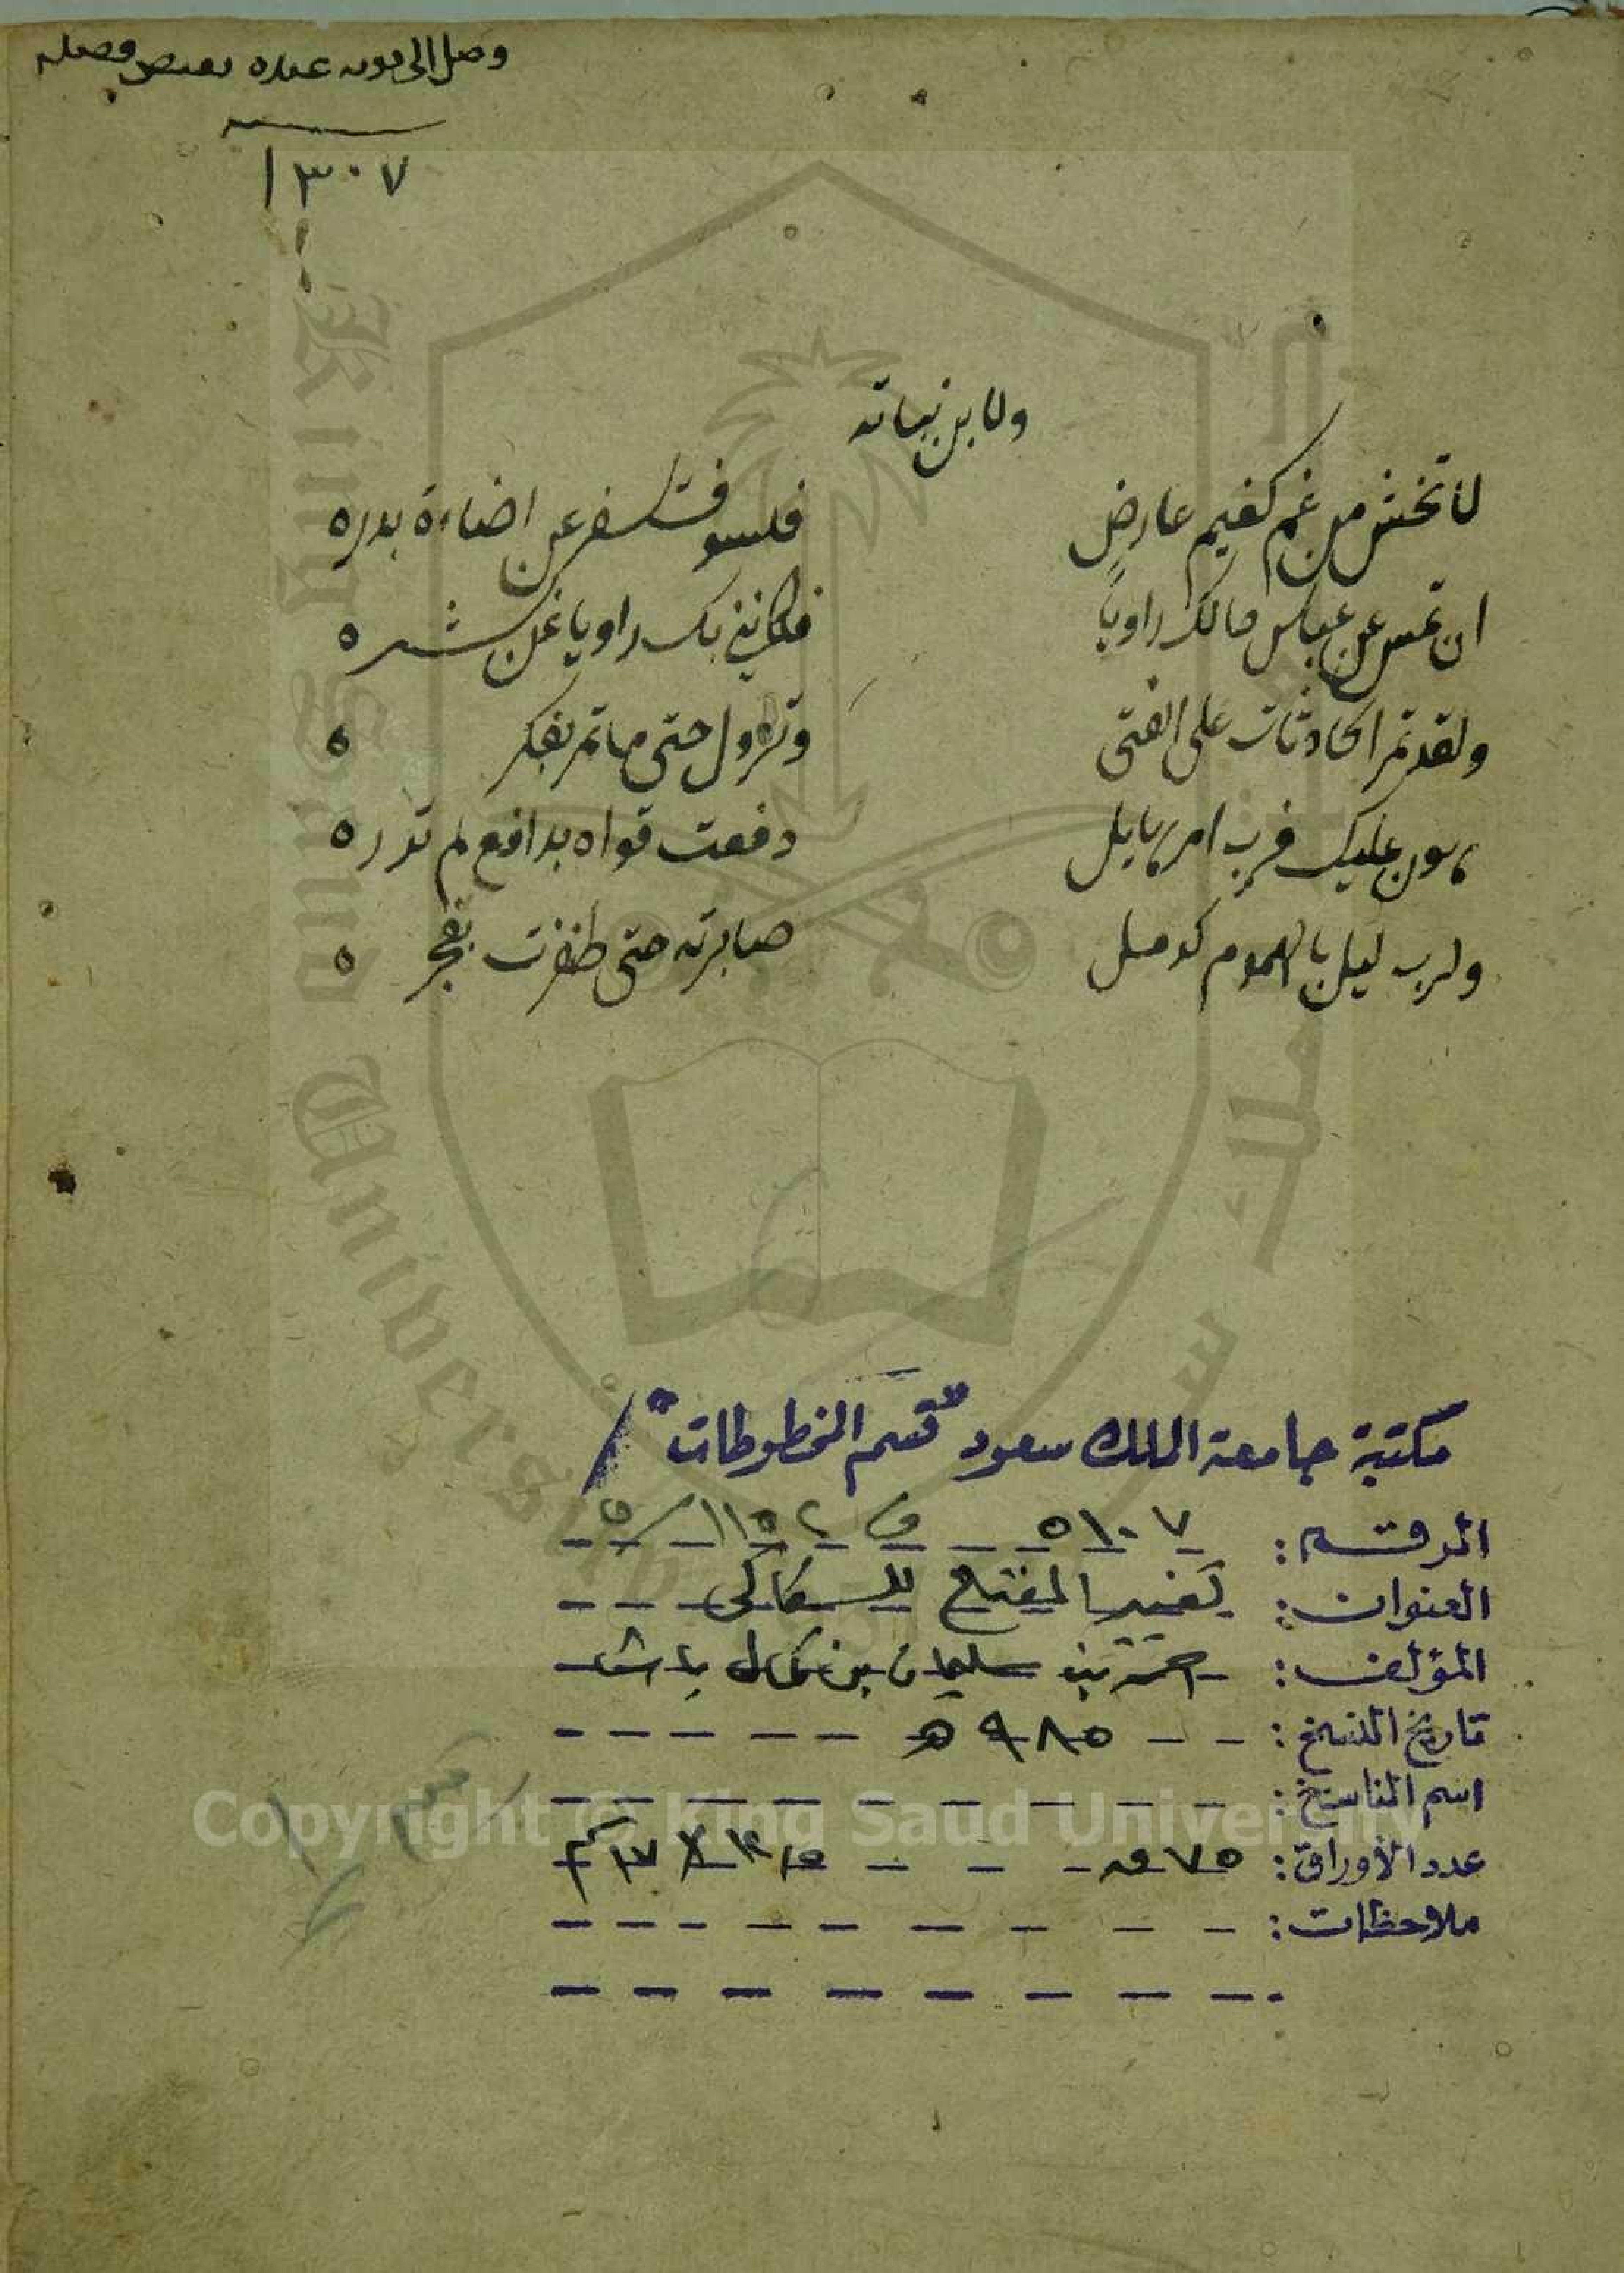 وصل الى عبده بعض فضله
١٣٠٧
ولابن نباته
لا تخش من غم كغيم عارض فلسوف تسفر عن اضاءة بدره
ان تمس عن عباس مالك راويا فكانني بك راويا عن بشره
ولقد تمر الحادثات على الفتى وتزول حتى ما تمر بفكره
عليك فرب امر هايل دفعت قواه بدافع لم تدره
ولرب ليل بالهموم كدمل صابرته حتى ظفرت بفجره
مكتبة جامعة الملك سعود "قسم المخطوطات"
الرقم: ٥١٠٧ ف ١١٥٢/٥
العنوان: تغيير المفتاح للسكاكي
المؤلف: احمد بن سليمان بن كمال باشا
تاريخ النسخ: ٩٨٥ هـ
اسم الناسخ:
عدد الأوراق: ٧٥ ق
ملاحظات:
King Saud University
Copyright © King Saud University